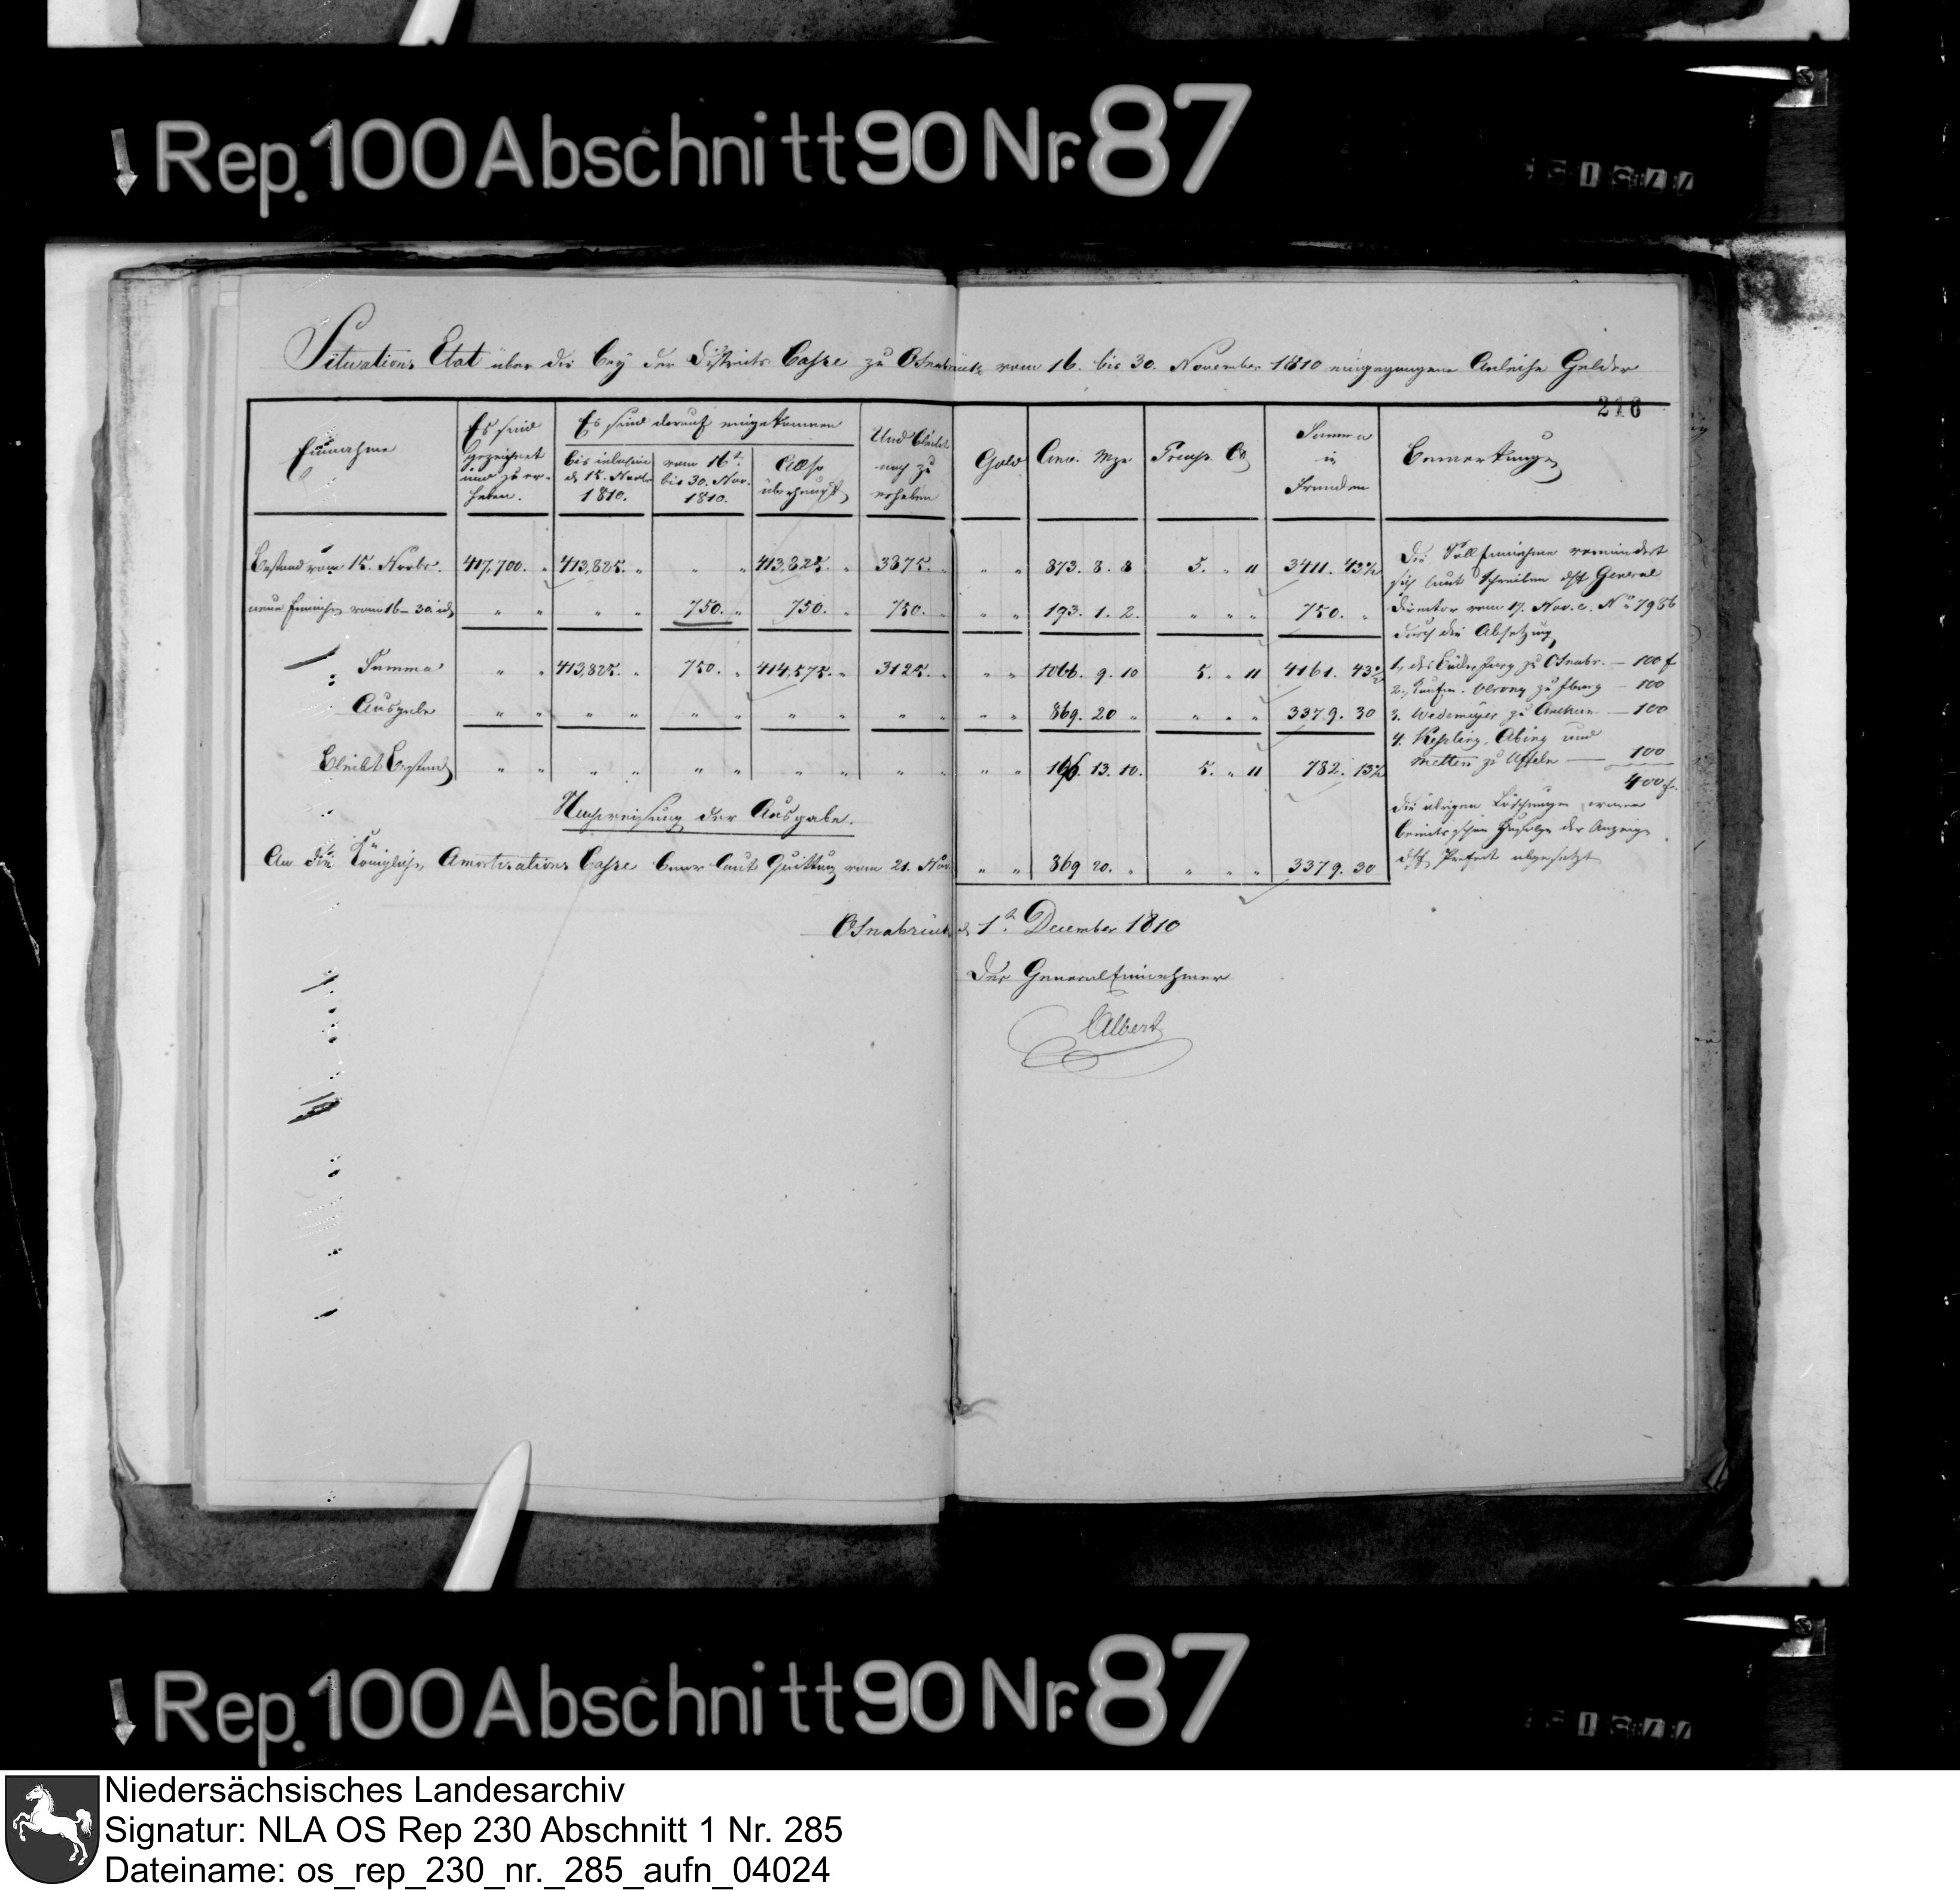 Rep. 100 Abschnitt 90 Nr. 87
Situations Etat über die bey der Districts Casse zu Osnabrück vom 16. bis 30. November 1810 eingegangene Anleihe Gelder
216
Einnahme
Es sind gezeichnet und zu erheben.
Es sind darauf eingekommen
bis inclusive d 15. Novbr 1810.
vom 16t. bis 30. Nov. 1810.
Also überhaupt
Und bleibet noch zu erheben
Gold
Conv. Mze
Preuss. Ct
Summa in Franken
Bemerkungen
Bestand vom 15. Novbr. 417,700. " 413,825. " " " 413,825. " 3875. " " " 873. 8. 8 5. " 11 3411. 43½
neue Einnahme vom 16-30. " " " " 750. " 750. " 750. " " " 193. 1. 2. " " " 750. "
Summa " " 413,825. " 750. " 414,575. " 3125. " " " 1066. 9. 10 5. " 11 4161. 43½
Ausgabe " " " " " " " " " " " " 869. 20 " " " " 3379. 30
Bleibt Bestand " " " " " " " " " " " " 196. 13. 10. 5. " 11 782. 13½
Die Soll Einnahme vermindert
sich laut Schreiben des General
Director vom 17. Nov. c. No 7986
durch die Absetzung
1, zu Osnabr. — 100 f
2, Kaufm. zu Iburg — 100
3. Wedemeyer zu — 100
4. Kessling, Abing und
Metten zu — 100
400 f.
die übrigen Löschungen
bereits zufolge der Anzeige
des Prefect abgesetzt
Nachweisung der Ausgabe.
An die Königliche Amortisations Casse baar laut Quittung vom 21. Nov. " " 869 20. " " " " 3379. 30
Osnabrück d 1t. December 1810
Der General Einnehmer
Albert
Rep. 100 Abschnitt 90 Nr. 87
Niedersächsisches Landesarchiv
Signatur: NLA OS Rep 230 Abschnitt 1 Nr. 285
Dateiname: os_rep_230_nr._285_aufn_04024